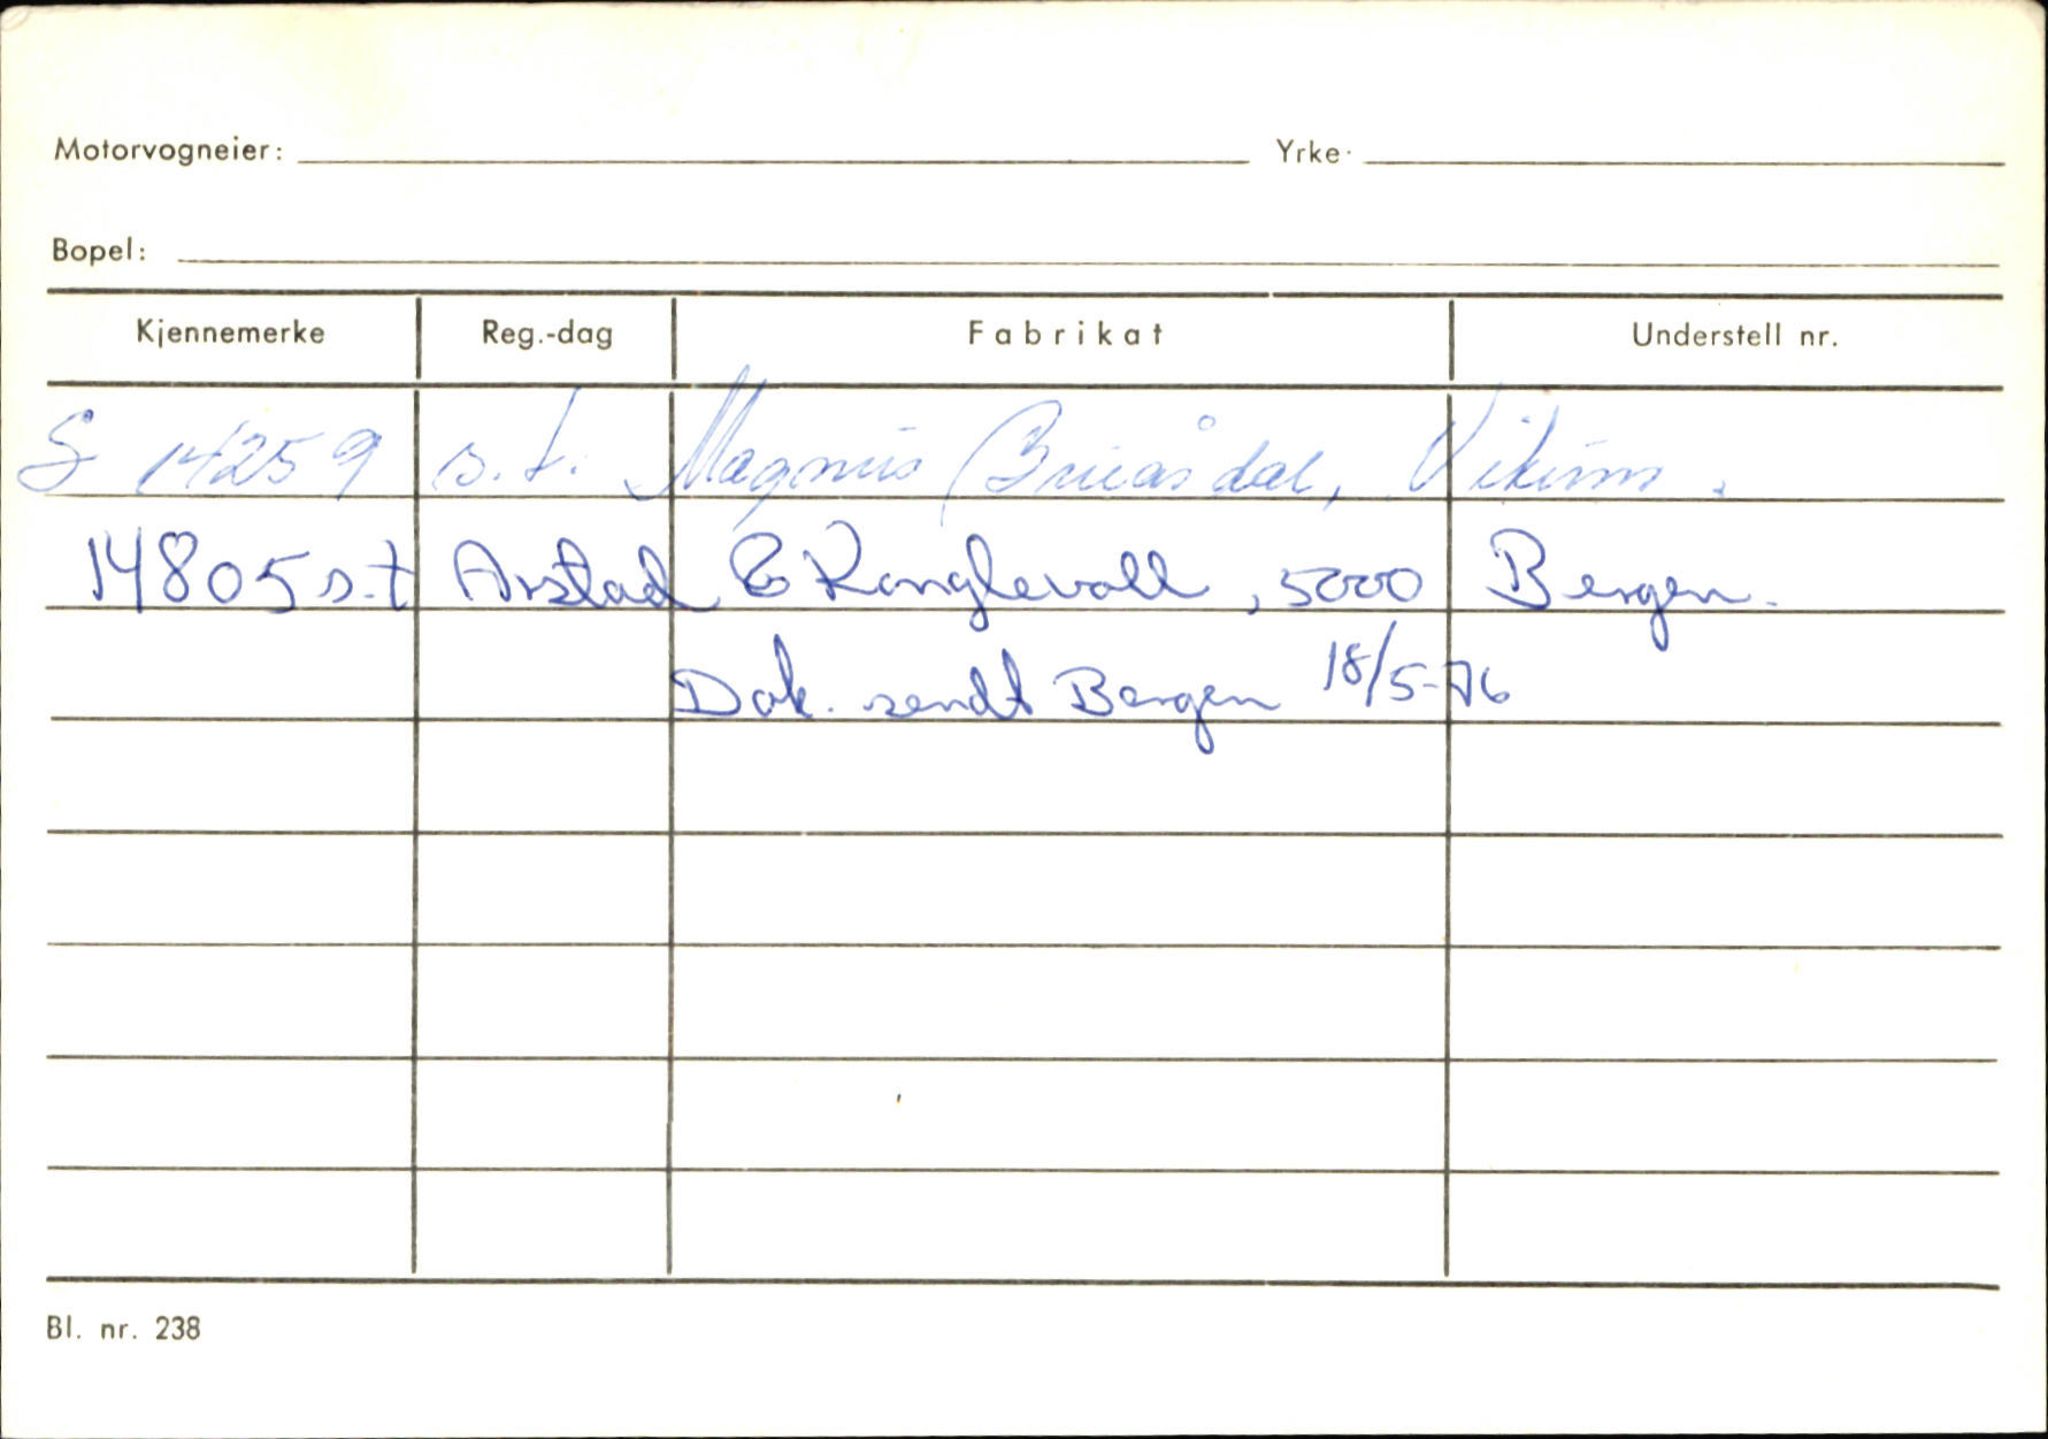 Motorvogneier:
Yrke
Bopel:
Kjennemerke Reg.-dag Fabrikat Understell nr.
S 14259 s.t. Magnus Bruåsdal, Vikum.
14805 s.t Arstad & Konglevoll, 5000 Bergen.
Dok. sendt Bergen 18/5-76
Bl. nr. 238